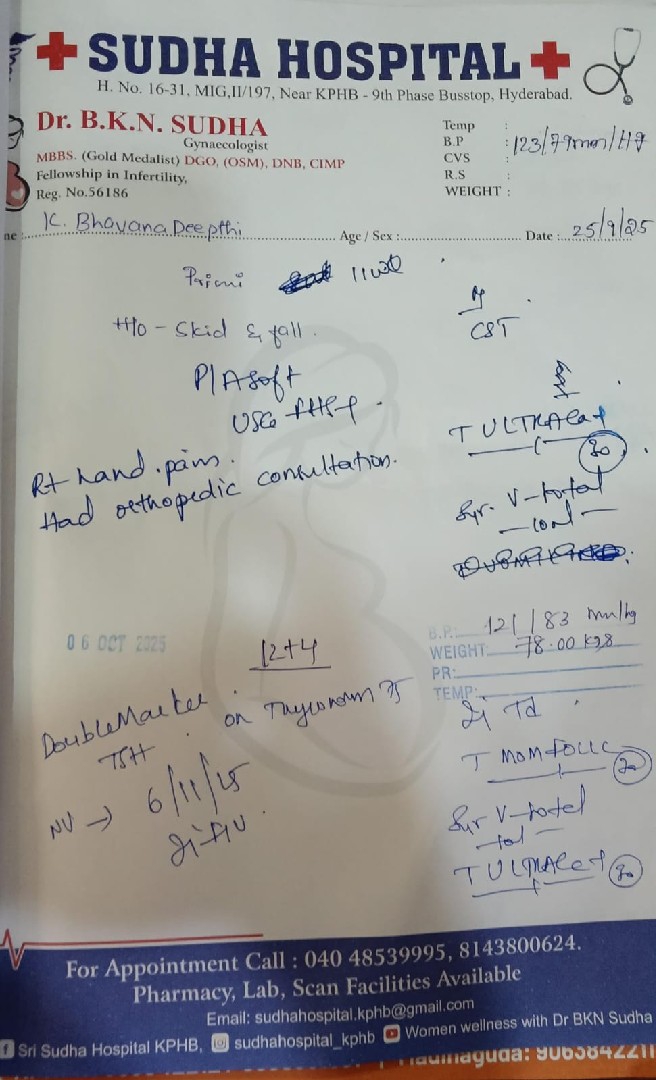 SUDHA HOSPITAL
H. No. 16-31, MIG,II/197, Near KPHB - 9th Phase Busstop, Hyderabad.
Dr. B.K.N. SUDHA
Gynaecologist
MBBS. (Gold Medalist) DGO, (OSM), DNB, CIMP
Fellowship in Infertility,
Reg. No.56186
Temp :
B.P : 123/79mm/Hg
CVS :
R.S :
WEIGHT :
me : K. Bhavana Deepthi Age / Sex : Date : 25/9/25
Primi
H/o - Skid & fall.
P/A Soft
USG
Rt hand pain.
Had orthopedic consultation.
CST
T ULTRACet
30
Syr. V-total
06 OCT 2025
12+4
Double Marker
TSH
on Thyronorm
NV → 6/11/25
B.P.: 121/83 mm/hg
WEIGHT: 78.00 kgs
PR:
TEMP:
Inj Td
T MOMFOLIC
30
Syr V-total
T ULTRACet
30
For Appointment Call : 040 48539995, 8143800624.
Pharmacy, Lab, Scan Facilities Available
Email: sudhahospital.kphb@gmail.com
Sri Sudha Hospital KPHB, sudhahospital_kphb Women wellness with Dr BKN Sudha